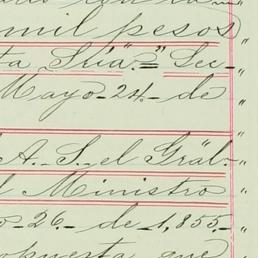 mil pesos
ta Slia" = " Sec-
Mayo-24.- de
A. S. el Gral.
l Ministro
26.- de 1,855.-
puesta que